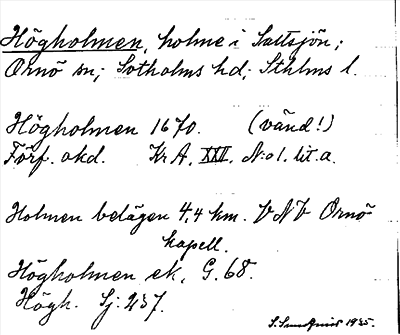 Högholmen, holme i Saltsjön;
Ornö sn; Sotholms hd; Sthlms l.
Högholmen 1670. (vänd!)
Förf. okd. Kr A. XXII. N:o 1. lit. a.
Holmen belägen 4,4 km. VNV Ornö
kapell.
Högholmen ek. G. 68.
Högh. Sj: 237.
S. 1935.